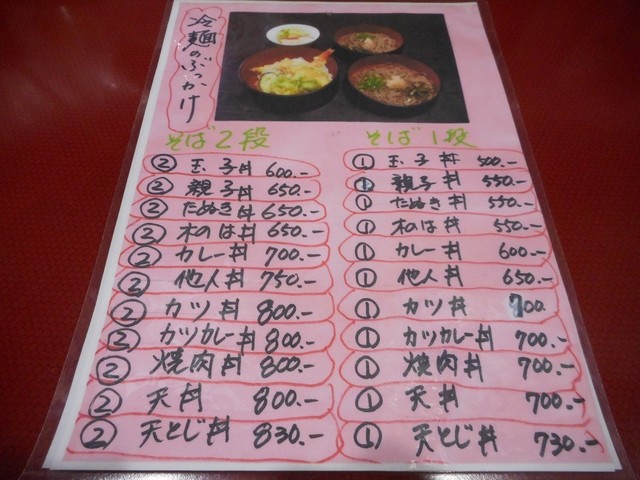 冷麺のぶっかけ
そば2段
② 玉子丼 600.-
② 親子丼 650.-
② たぬき丼 650.-
② 木のは丼 650.-
② カレー丼 700.-
② 他人丼 750.-
② カツ丼 800.-
② カツカレー丼 800.-
② 焼肉丼 800.-
② 天丼 800.-
② 天とじ丼 830.-
そば1段
① 玉子丼 500.-
① 親子丼 550.-
① たぬき丼 550.-
① 木のは丼 550.-
① カレー丼 600.-
① 他人丼 650.-
① カツ丼 700.
① カツカレー丼 700.-
① 焼肉丼 700.-
① 天丼 700.-
① 天とじ丼 730.-